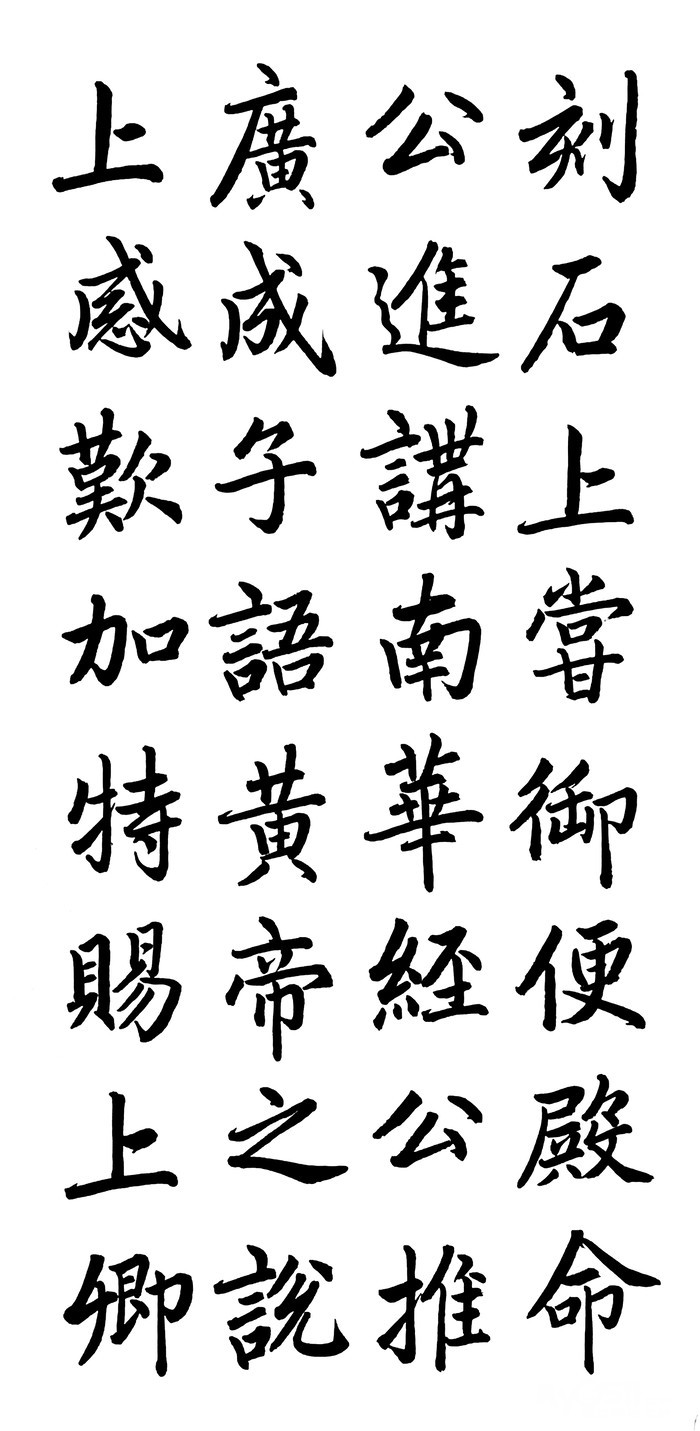 刻石上嘗御便殿命
公進講南華經公推
廣成子語黃帝之說
上感歎加特賜上卿